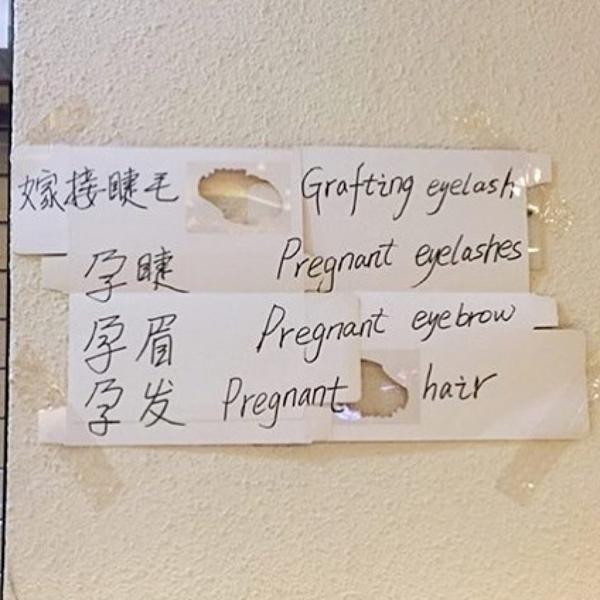 嫁接睫毛 Grafting eyelash
孕睫 Pregnant eyelashes
孕眉 Pregnant eyebrow
孕发 Pregnant hair